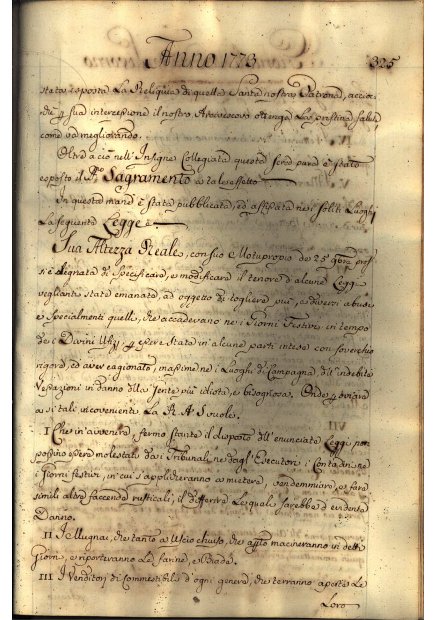 Anno 1773 325
stata esposta La Reliquia di questa Santa nostra Patrona, accio
sua intercessione il nostro Arcivescovo ottenga La pristina salute
come va megliorando.
Oltre a ciò nell'Insigne Collegiata questa sera pure è stato
esposto il Sagramento a tale effetto
In questa mane è stata pubblicata, ed affissata ne soliti Luoghi
La seguente Legge
Sua Altezza Reale, con suo Motuproprio de 25
si è degnata di Specificare, e modificare il tenore d'alcune Leggi
veglianti state emanate, ad oggetto di togliere più, e diversi abusi
e Specialmente quelli, che accadevano ne Giorni Festivi in tempo
de Divini essere State in alcune parti intese con soverchio
rigore, ed aver cagionato, massime ne Luoghi di Campagna, dell'indebite
Vessazioni in danno della Gente più idiota, e bisognosa. Onde ovviare
a si tali inconvenienti La R. A. S. vuole.
I Che in avvenire, fermo stante il disposto dell'enunciate Leggi non
possino essere molestati da i Tribunali, ne dagl'Esecutori i Contadini ne
Giorni festivi, in cui s'applicheranno a mietere, vendemmiare, e fare
simili altre faccende rusticali, il differire Le quali sarebbe d'evidente
Danno.
II I Mugnai, che tanto a Uscio chiuso, che aperto macineranno in detti
Giorni, e riporteranno Le farine, e Biade.
III I Venditori di Commestibili d'ogni genere, che terranno aperte Le
Loro